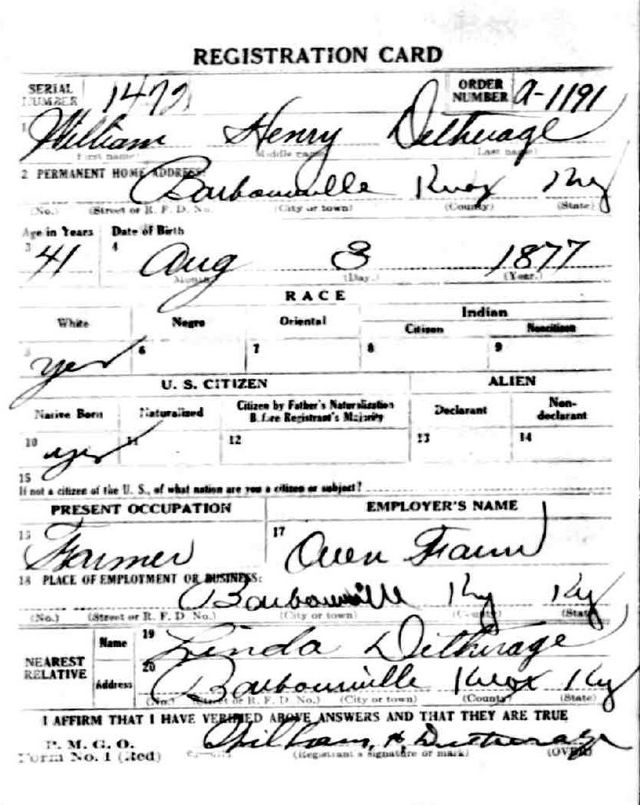 REGISTRATION CARD
SERIAL NUMBER 1472 ORDER NUMBER A-1191
1 William Henry Detherage
(First name) (Middle name) (Last name)
2 PERMANENT HOME ADDRESS:
Barbourville Knox Ky
(No.) (Street or R. F. D. No.) (City or town) (County) (State)
Age in Years Date of Birth
3 41 4 Aug 3 1877
(Month.) (Day.) (Year.)
RACE
White Negro Oriental Indian
Citizen Noncitizen
5 yes 6 7 8 9
U. S. CITIZEN ALIEN
Native Born Naturalized Citizen by Father's Naturalization Before Registrant's Majority Declarant Non-declarant
10 yes 11 12 13 14
15
If not a citizen of the U. S., of what nation are you a citizen or subject?
PRESENT OCCUPATION EMPLOYER'S NAME
Farmer 17 Own Farm
18 PLACE OF EMPLOYMENT OR BUSINESS:
Barbourville Ky Ky
(No.) (Street or R. F. D. No.) (City or town) (County) (State)
NEAREST RELATIVE Name 19 Linda Detherage
Address 20 Barbourville Knox Ky
(No.) (Street or R. F. D. No.) (City or town) (County) (State)
I AFFIRM THAT I HAVE VERIFIED ABOVE ANSWERS AND THAT THEY ARE TRUE
P. M. G. O. William, H, Detherage
Form No. 1 (Red) (Registrant's signature or mark) (OVER)